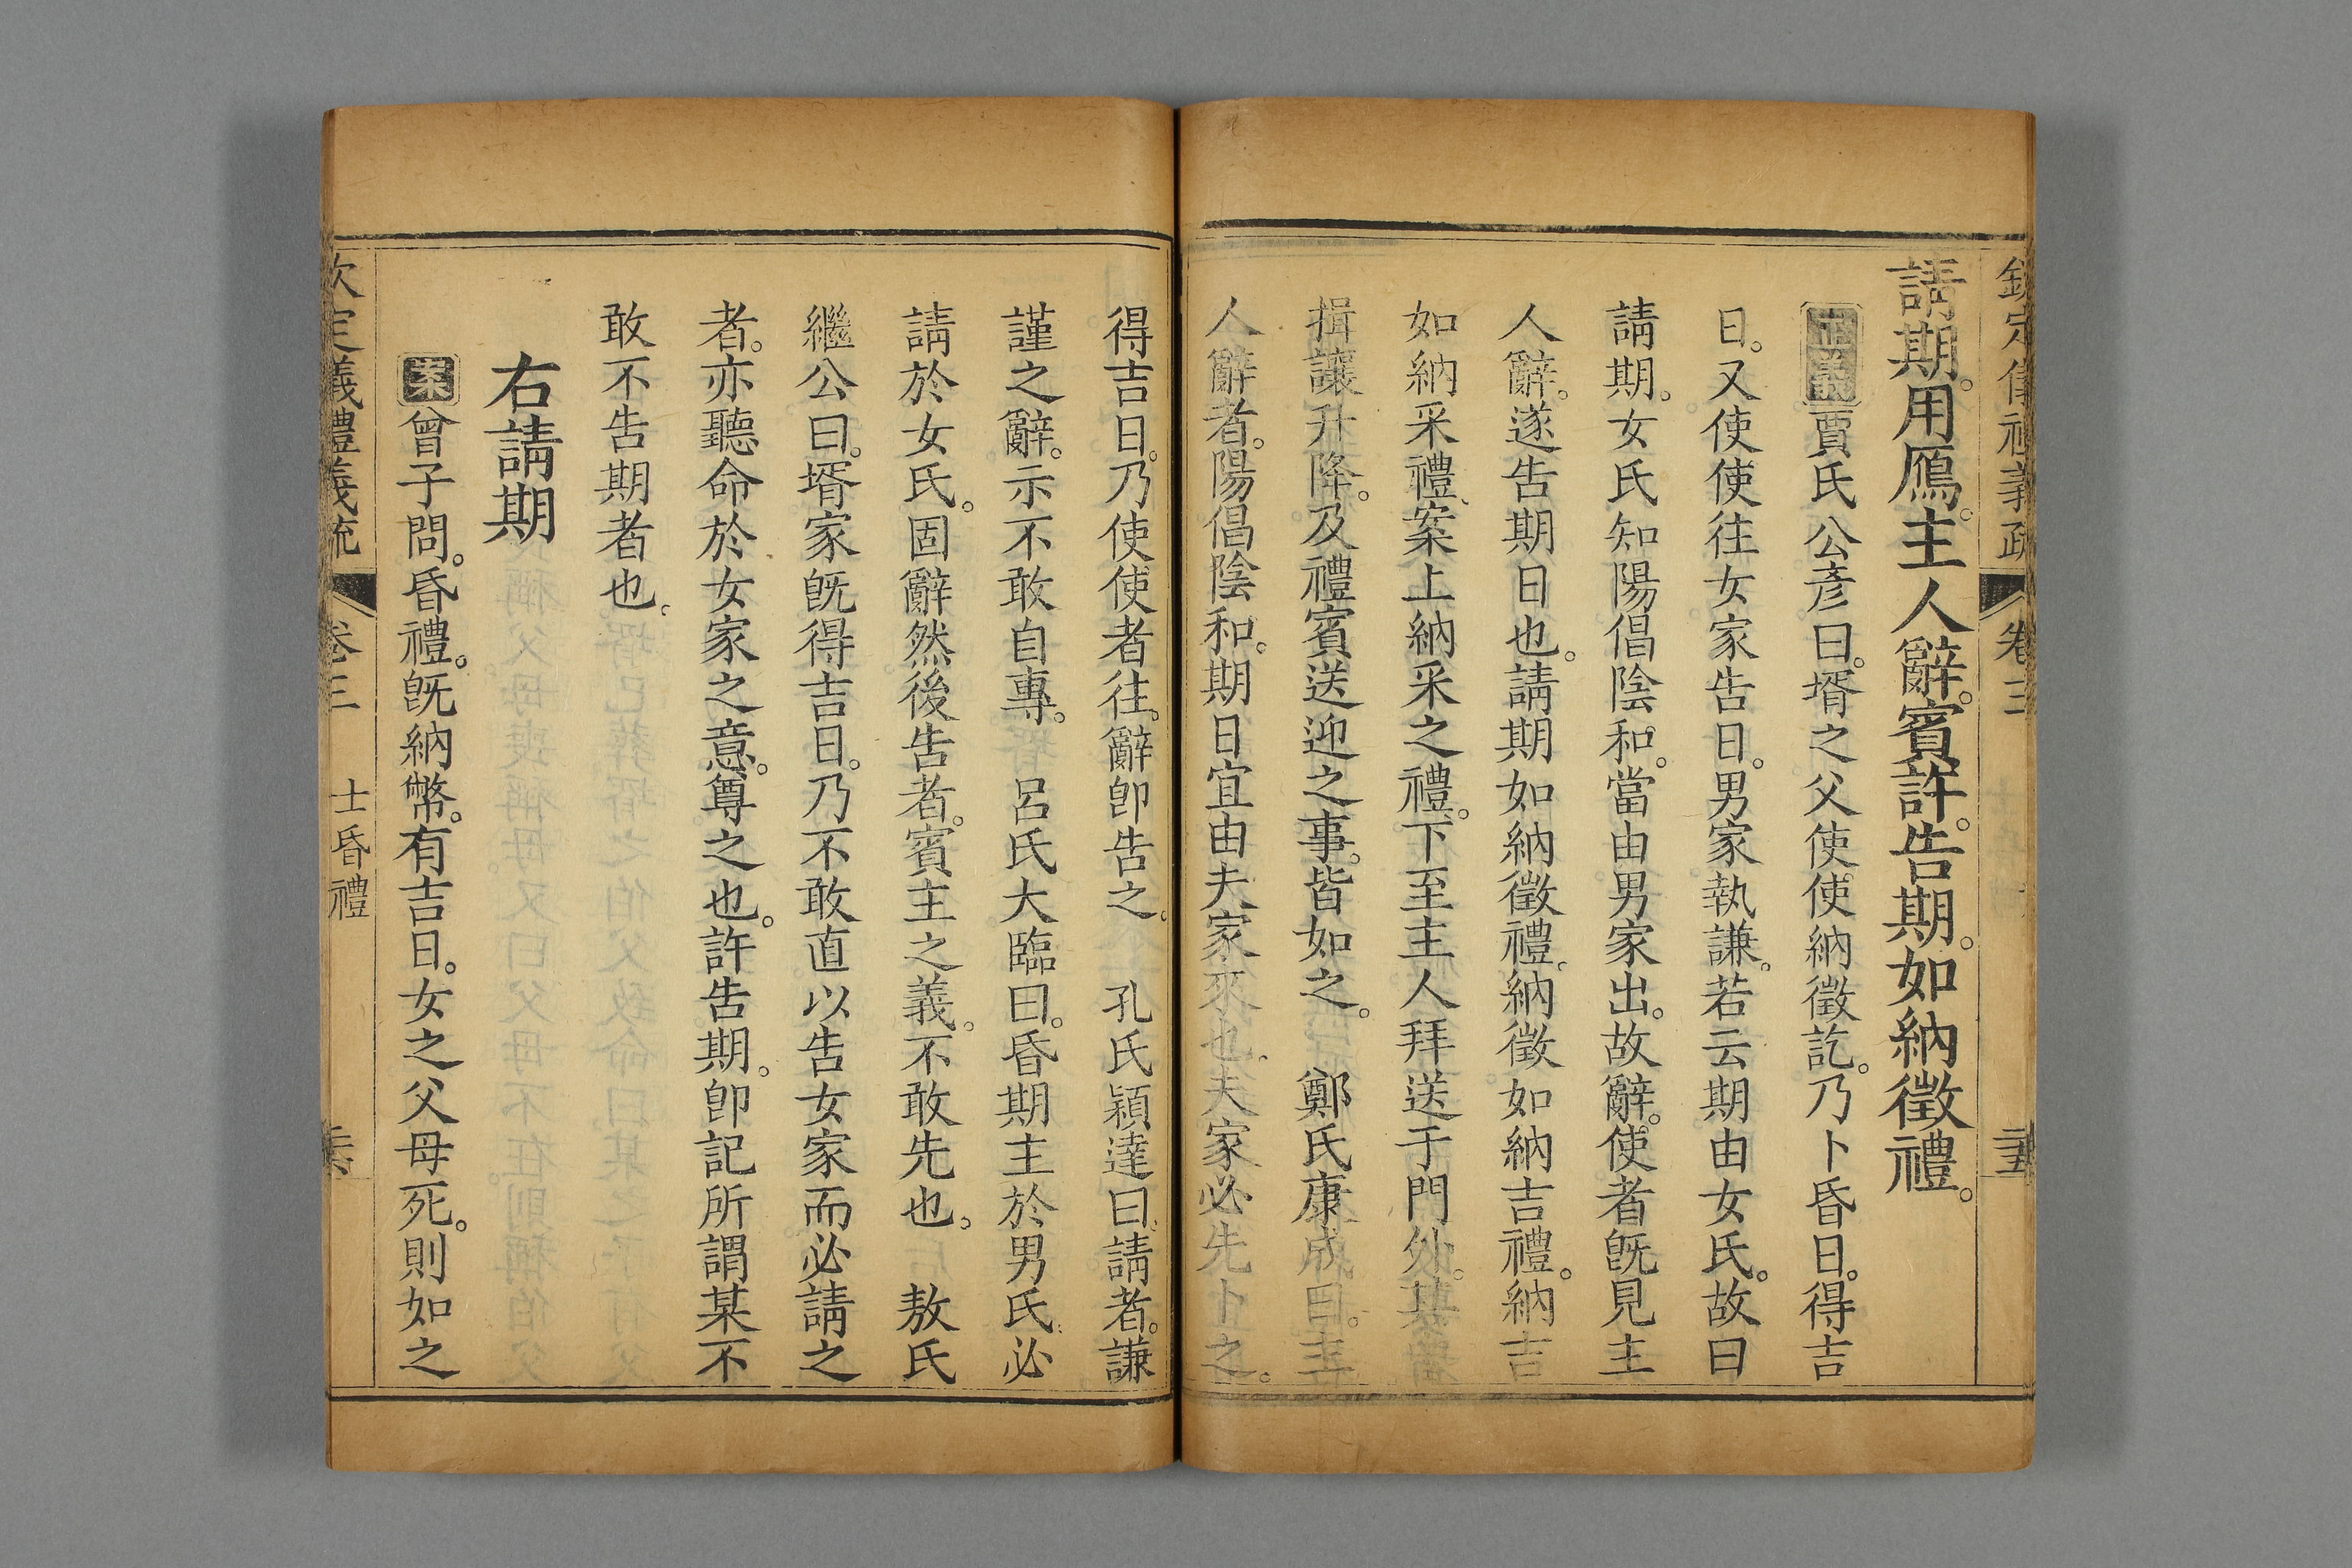 欽定儀禮義疏 卷三
請期。用鴈。主人辭。賓許。告期。如納徵禮。
正義賈氏公彦曰。壻之父使使納徵訖。乃卜昏日。得吉
日。又使使往女家告日。男家執謙。若云期由女氏。故曰
請期。女氏知陽倡陰和。當由男家出。故辭。使者旣見主
人辭。遂告期日也。請期如納徵禮。納徵如納吉禮。納吉
如納采禮、案上納采之禮。下至主人拜送于門外。其
揖讓升降。及禮賓送迎之事。皆如之。 鄭氏康成曰。主
人辭者。陽倡陰和。期日宜由夫家來也。夫家必先卜之。
得吉日。乃使使者往。辭卽告之。 孔氏穎達曰。請者。謙
謹之辭。示不敢自專。 呂氏大臨曰。昏期主於男氏、必
請於女氏。固辭然後告者。賓主之義。不敢先也。 敖氏
繼公曰。壻家旣得吉日。乃不敢直以告女家而必請之
者。亦聽命於女家之意。尊之也。許告期。卽記所謂某不
敢不告期者也。
右請期
案曾子問。昏禮。旣納幣。有吉日。女之父母死。則如之
欽定義禮義疏 卷三 士昏禮